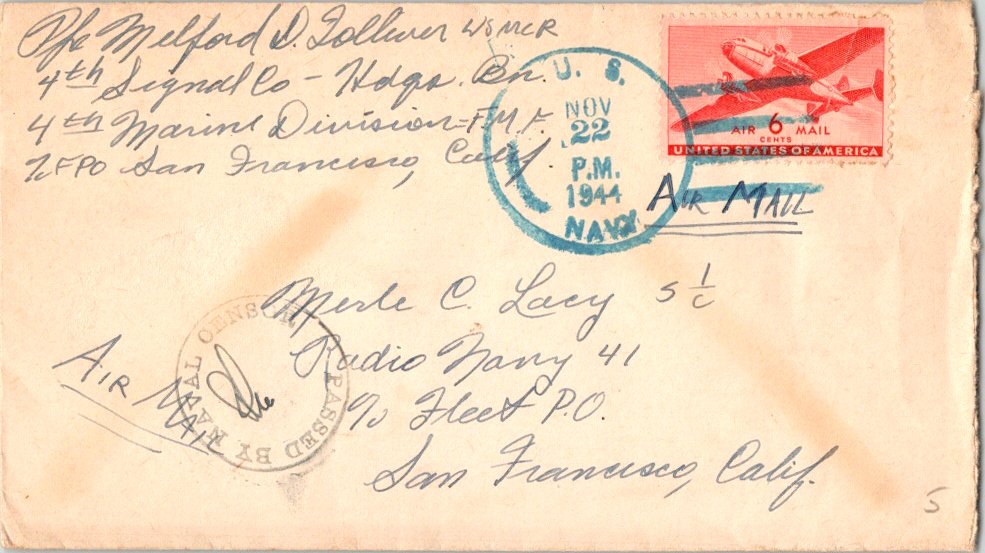 Pfc Melford D. Tolliver USMCR
4th Signal Co - Hdqs. Bn.
4th Marine Division - F.M.F.
℅ FPO San Francisco, Calif
U. S.
NOV
22
P.M.
1944
NAVY
AIR 6 MAIL
CENTS
UNITED STATES OF AMERICA
AIR MAIL
Merle C. Lacy S 1/c
Radio Navy 41
℅ Fleet P.O.
San Francisco, Calif.
AIR MAIL
PASSED BY NAVAL CENSOR
5